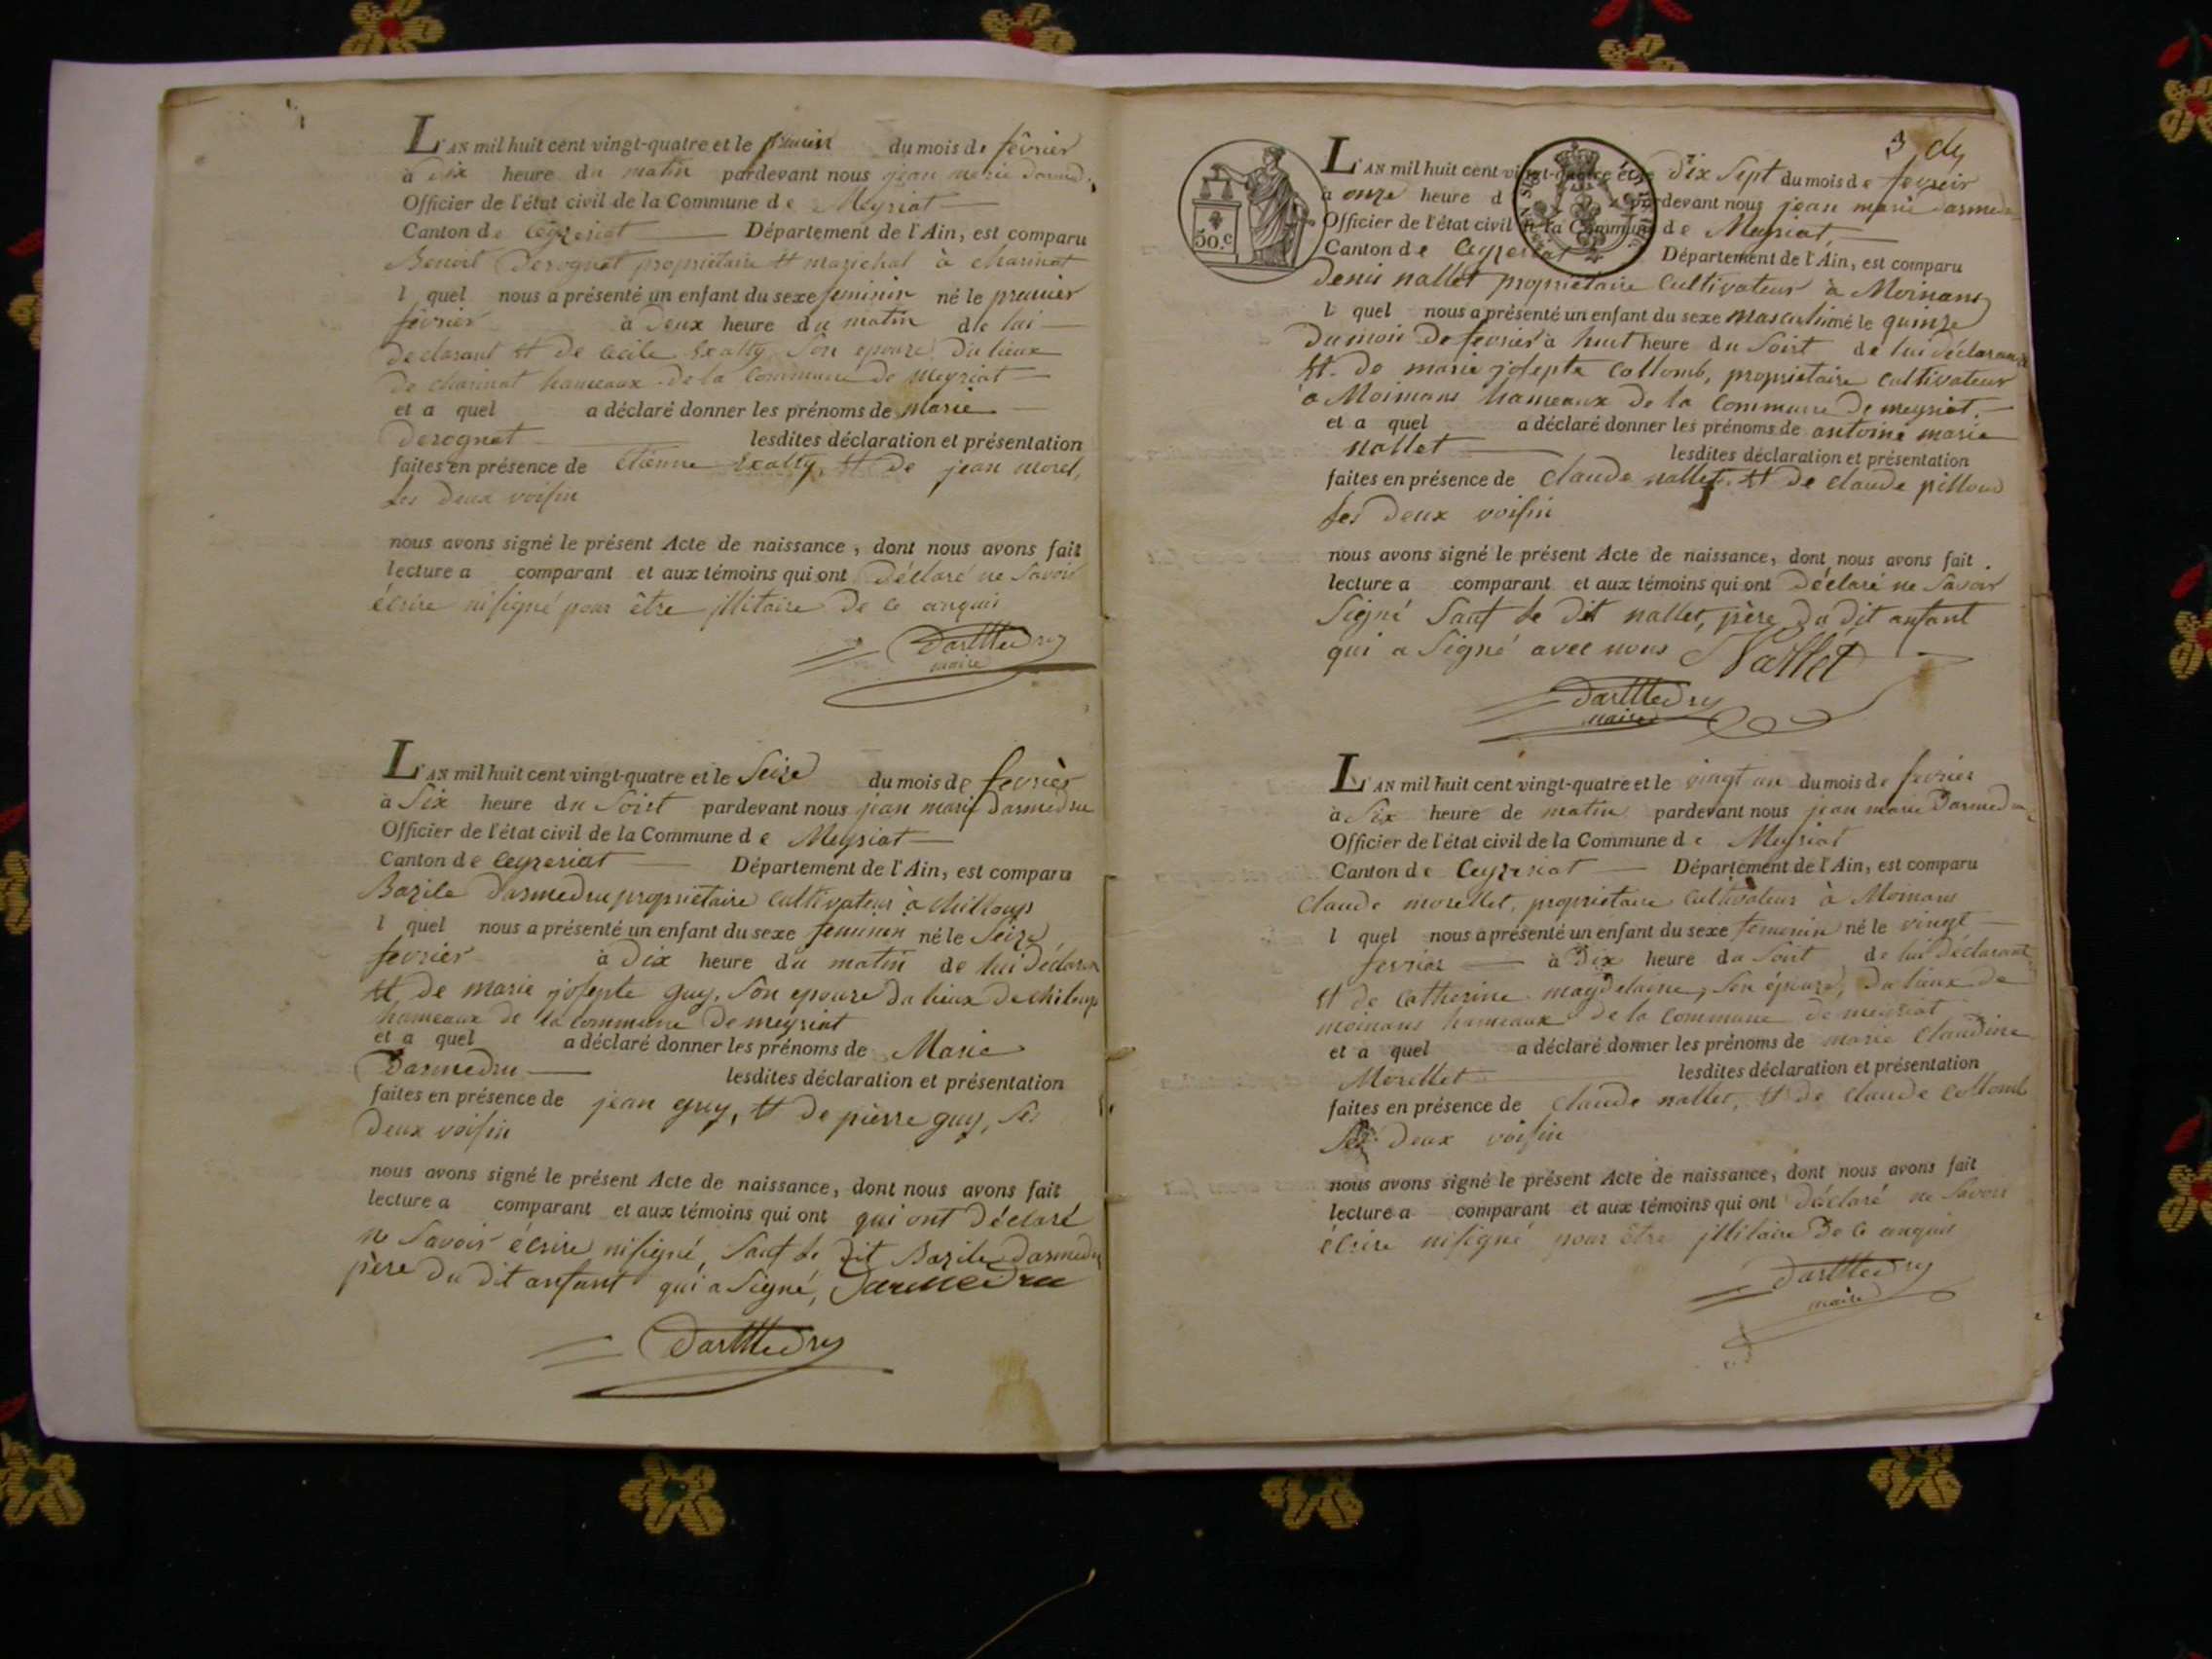 L'AN mil huit cent vingt-quatre et le premier du mois de fevrier
à dix heure du matin pardevant nous jean marie Darmed
Officier de l'état civil de la Commune de Meyriat
Canton de Ceyzeriat Département de l'Ain, est comparu
Benoit Derognat proprietaire et marichal à charinat
l quel nous a présenté un enfant du sexe feminin né le premier
fevrier à Deux heure du matin de lui
declarant et de Cecile son epouze du lieux
de charinat hameaux de la Commune de meyriat
et a quel a déclaré donner les prénoms de marie
Derognat lesdites déclaration et présentation
faites en présence de Etienne et de jean morel,
ses deux voisin
nous avons signé le présent Acte de naissance, dont nous avons fait
lecture a comparant et aux témoins qui ont Déclaré ne savoir
écrire ni signé pour être illitaire De ce anquis
Darmedru
maire
L'AN mil huit cent vingt-quatre et le seize du mois de fevrier
à Six heure du Soirt pardevant nous jean marie Darmedru
Officier de l'état civil de la Commune de Meyriat
Canton de Ceyzeriat Département de l'Ain, est comparu
Bazile Darmedru proprietaire cultivateur à chilloup
l quel nous a présenté un enfant du sexe feminin né le Seize
fevrier à Dix heure du matin de lui Déclaran
et de marie josepte guy, son epouze Du lieux de chiloup
hameaux de la commune De meyriat
et a quel a déclaré donner les prénoms de Marie
Darmedru lesdites déclaration et présentation
faites en présence de jean guy, et de pierre guy, ses
Deux voisin
nous avons signé le présent Acte de naissance, dont nous avons fait
lecture a comparant et aux témoins qui ont qui ont Déclaré
ne Savoir écrire ni signé, Sauf le Dit Bazile Darmedru
père Du Dit anfant qui a Signé, Darmedru
Darmedru
3
L'AN mil huit cent vingt-quatre et le Dix Sept du mois de fevrier
à onze heure d pardevant nous jean marie Darmedru
Officier de l'état civil de la Commune de Meyriat
50.c
Canton de Ceyzeriat Département de l'Ain, est comparu
Denis nallet proprietaire Cultivateur à Moinans
l quel nous a présenté un enfant du sexe masculin né le quinze
Du mois De fevrier à huit heure du Soirt de lui déclarant
et de marie josepte Collomb, proprietaire cultivateur
à Moinans hameaux De la Commune De meyriat.
et a quel a déclaré donner les prénoms de antoine marie
nallet lesdites déclaration et présentation
faites en présence de Claude nallet, et De claude pilloud
ses Deux voisin
nous avons signé le présent Acte de naissance, dont nous avons fait
lecture a comparant et aux témoins qui ont Déclaré ne Savoir
Signé Sauf le Dit nallet, père Du Dit anfant
qui a Signé avec nous Nallet
Darmedru
maire
L'AN mil huit cent vingt-quatre et le vingt un du mois de fevrier
à Six heure de matin pardevant nous jean marie Darmedru
Officier de l'état civil de la Commune de Meyriat
Canton de Ceyzeriat Département de l'Ain, est comparu
Claude morellet, proprietaire Cultivateur à Moinans
l quel nous a présenté un enfant du sexe femenin né le vingt
fevrier à Dix heure du Soirt de lui Déclarant
et de Catherine magdelaine, son épouze, Du lieux de
moinans hameaux de la commune de meyriat
et a quel a déclaré donner les prénoms de marie Claudine
Morellet lesdites déclaration et présentation
faites en présence de Claude nallet, et de Claude Collomb
Ses deux voisin
nous avons signé le présent Acte de naissance, dont nous avons fait
lecture a comparant et aux témoins qui ont déclaré ne Savoir
écrire ni signé pour être illitaire De ce anquis
Darmedru
maire